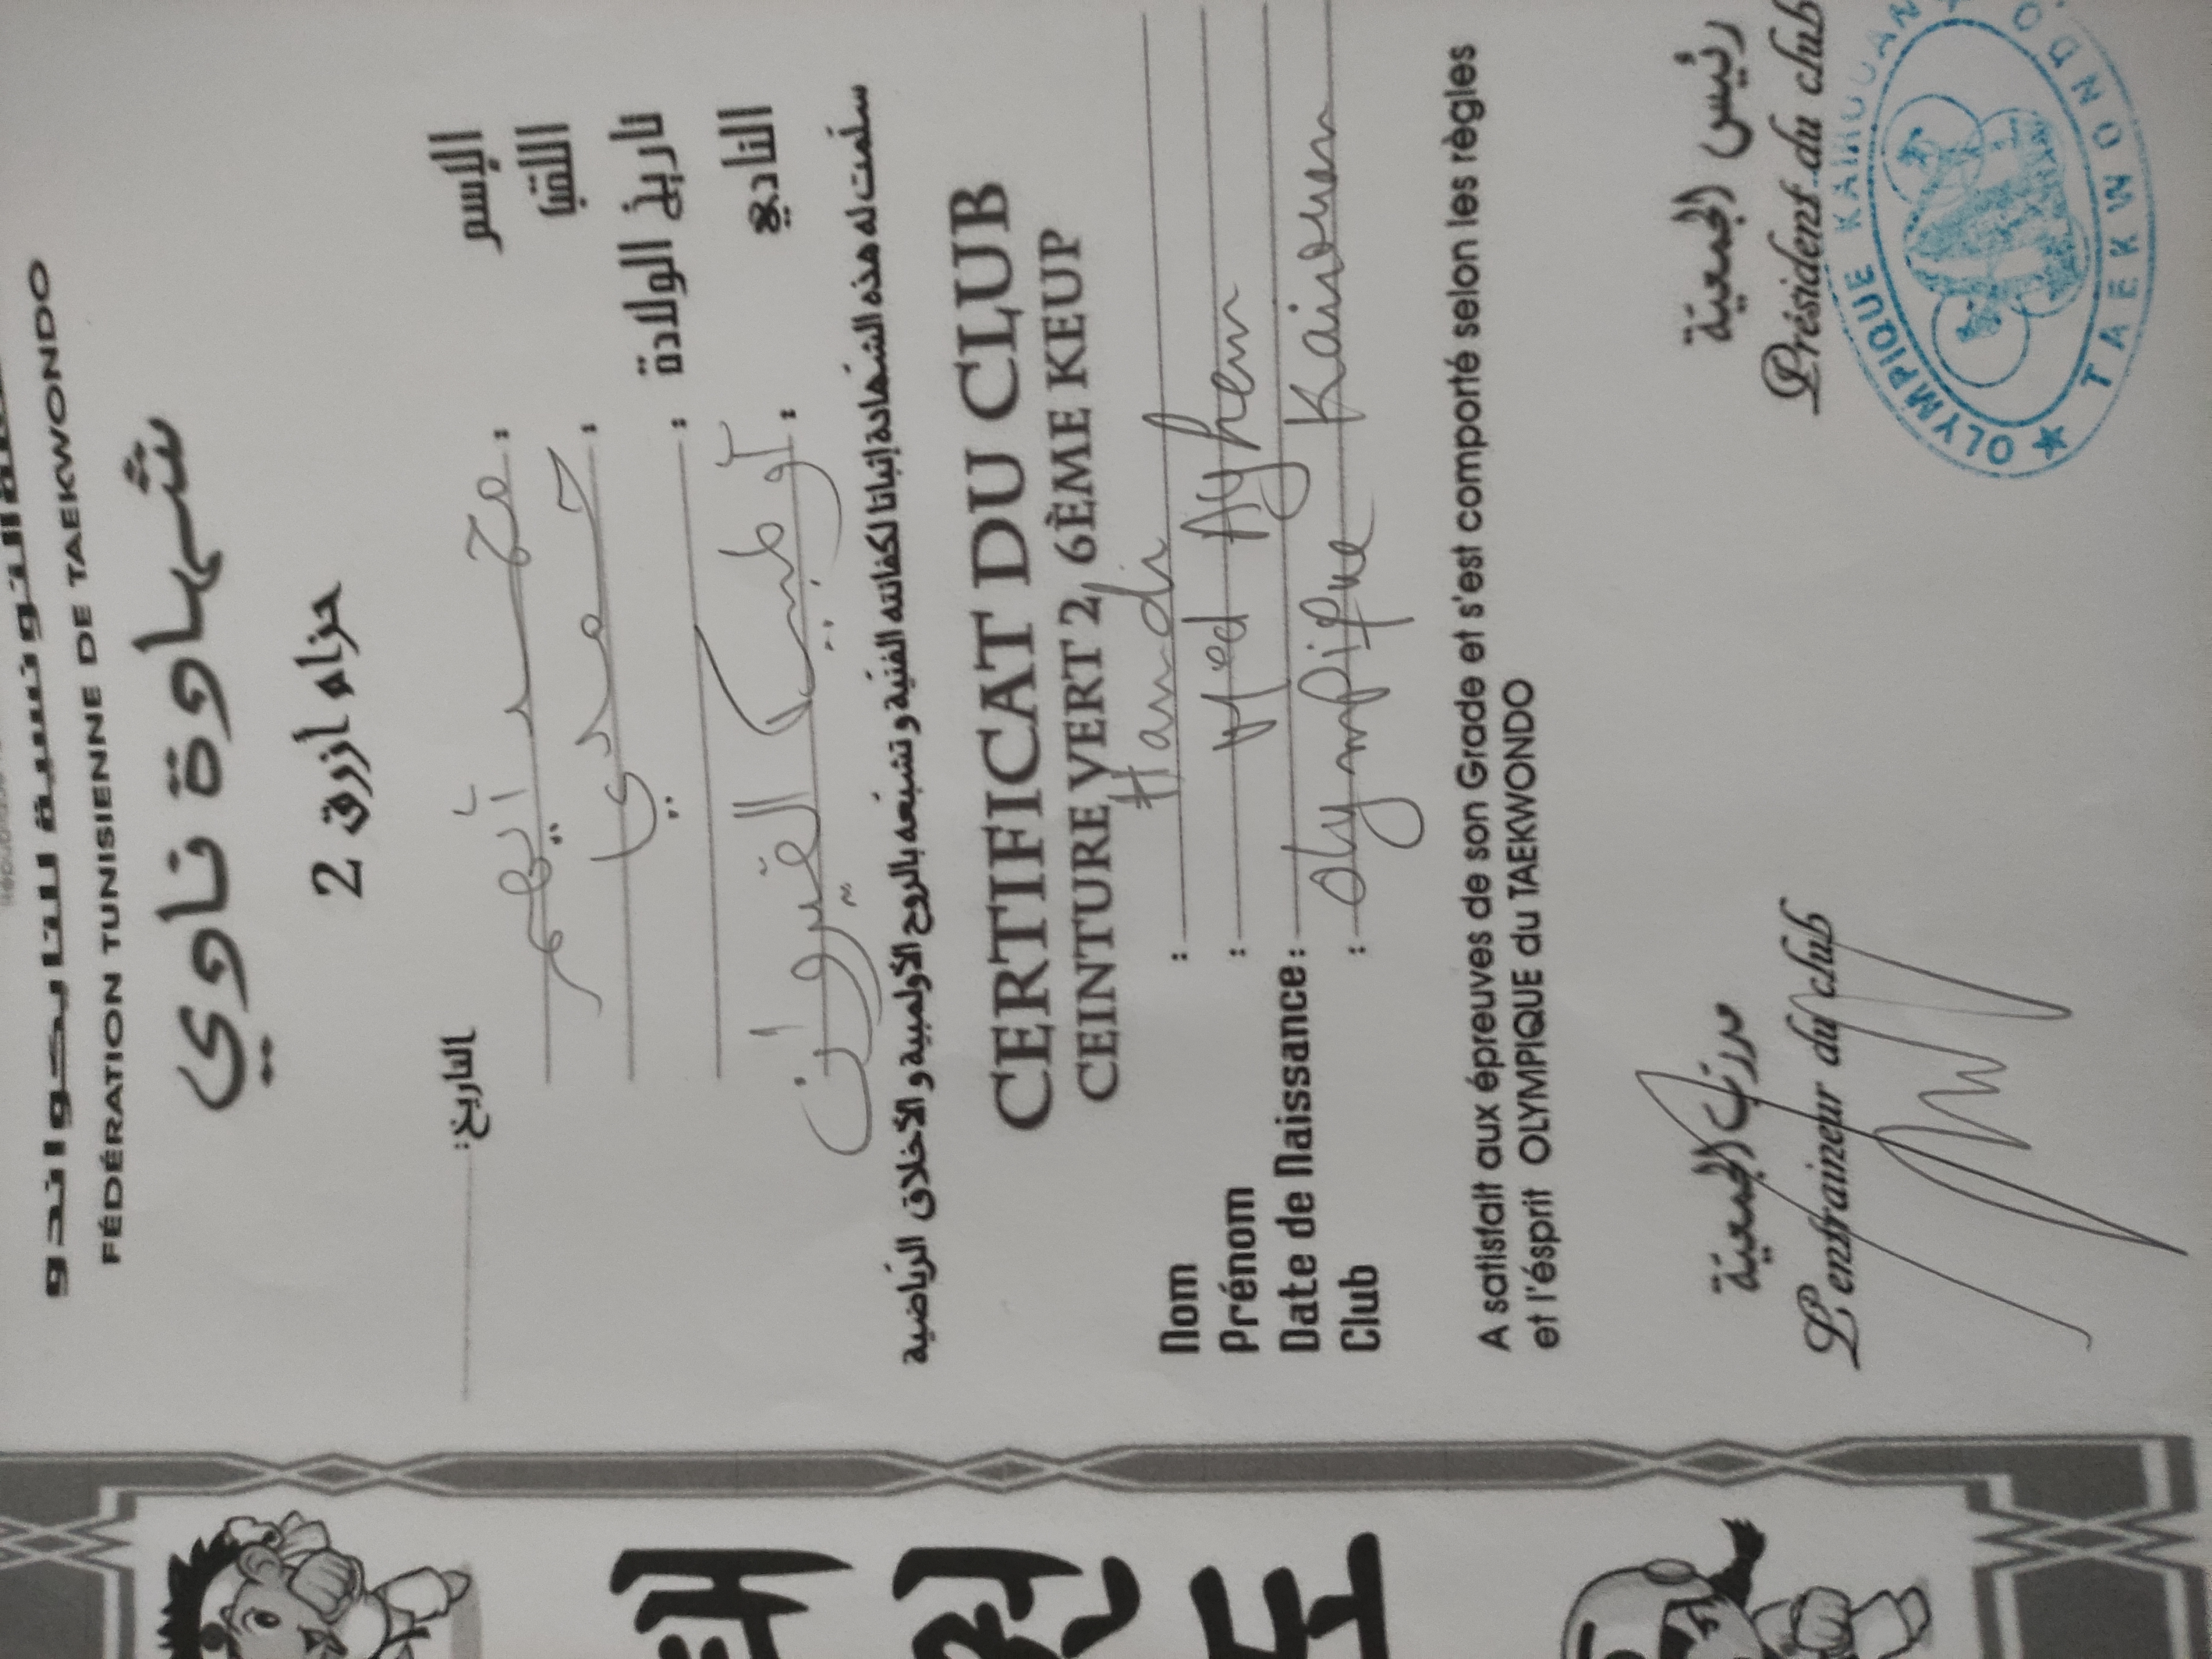 التونسية للتايكواندو
FÉDÉRATION TUNISIENNE DE TAEKWONDO
شهادة نادي
حزام أزرق 2
التاريخ:
الإسم : محمد أيهم
اللقب : حمدي
تاريخ الولادة :
النادي : أولمبيك القيروان
سلّمت له هذه الشهادة إثباتا لكفائته الفنيّة و تشبّعه بالروح الأولمبية و الأخلاق الرياضية
CERTIFICAT DU CLUB
CEINTURE VERT 2 6ÈME KEUP
Nom : Hamdi
Prénom : Med Ayhem
Date de Naissance :
Club : Olympique Kairouan
A satistait aux épreuves de son Grade et s'est comporté selon les règles
et l'ésprit OLYMPIQUE du TAEKWONDO
مدرّب الجمعيّة
رئيس الجمعيّة
L'entraineur du club
Président du club
OLYMPIQUE KAIROUAN
TAEKWONDO
태권도